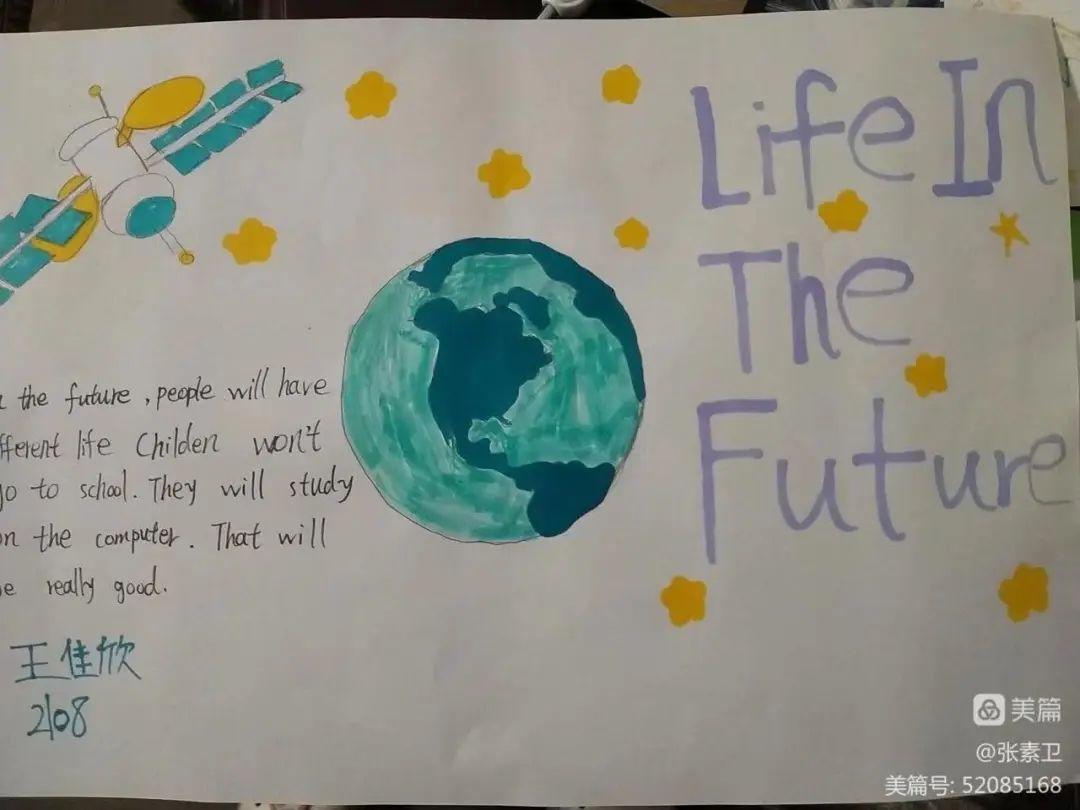 Life In
The
Future
the future, people will have
fferent life Childen won't
go to school. They will study
on the computer. That will
e really good.
王佳欣
2108
美篇
@张素卫
美篇号: 52085168